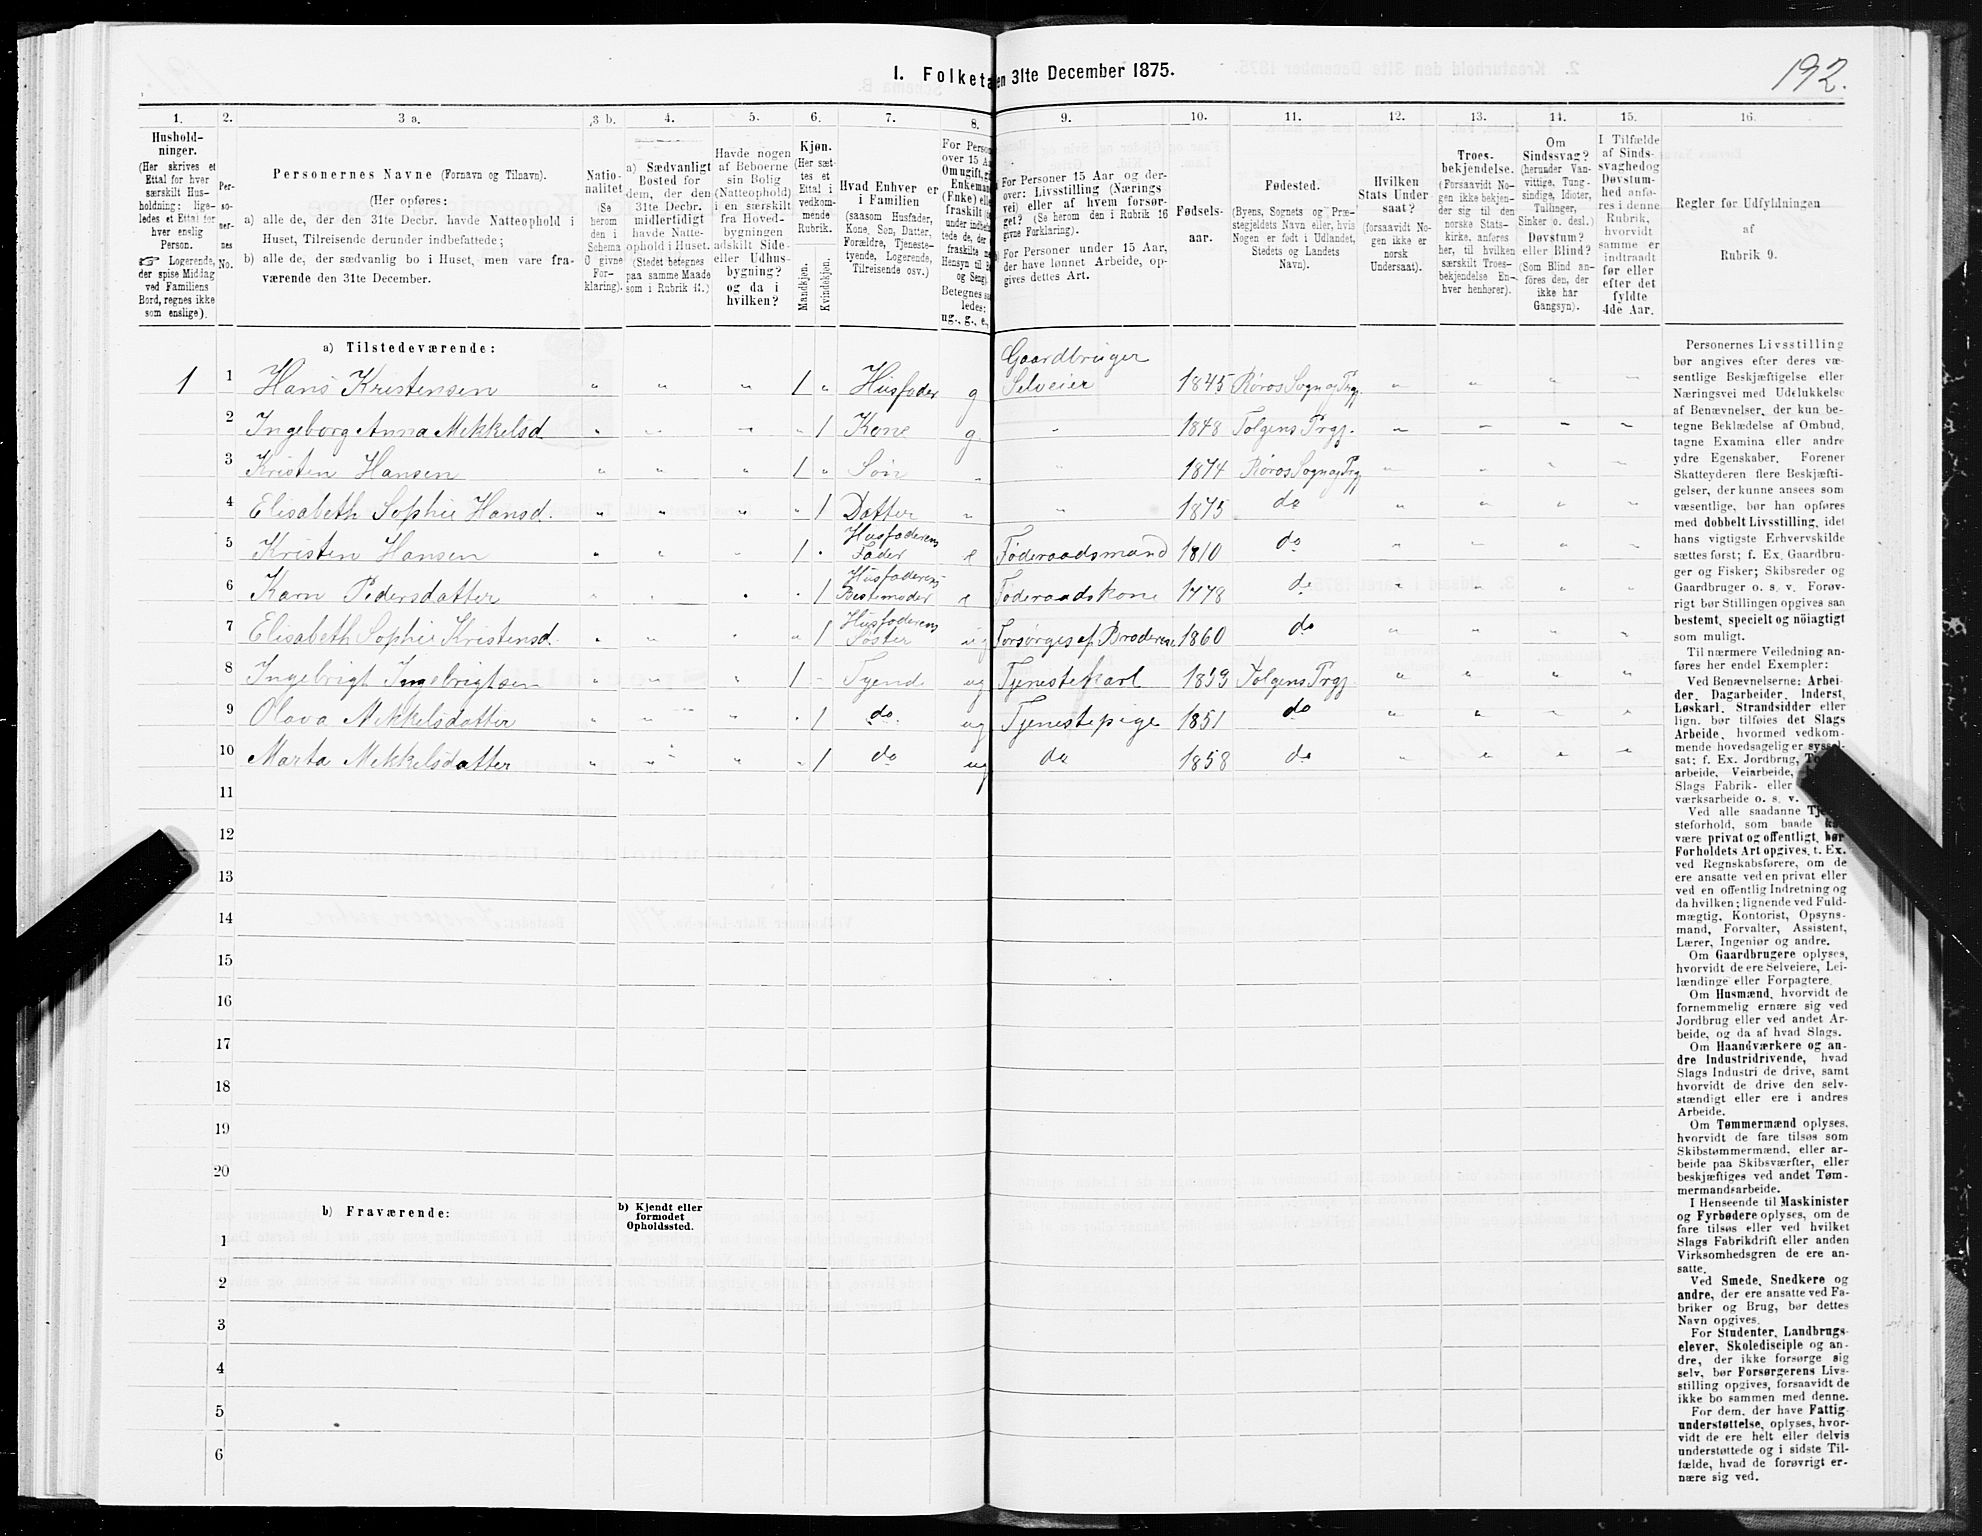 192.
I. Folketæ en 31te December 1875.
1. 2. 3 a. 3 b. 4. 5. 6. 7. 8. 9. 10. 11. 12. 13. 14. 15. 16.
Hushold-
ninger.
(Her skrives et
Ettal for hver
særskilt Hus-
holdning: lige-
ledes et Ettal for
hver enslig
Person.
☞ Logerende,
der spise Middag
ved Familiens
Bord, regnes ikke
som enslige).
Per-
so-
ner-
nes
No.
Personernes Navne (Fornavn og Tilnavn).
(Her opføres:
a) alle de, der den 31te Decbr. havde Natteophold i
Huset, Tilreisende derunder indbefattede;
b) alle de, der sædvanlig bo i Huset, men vare fra-
værende den 31te December.
Natio-
nalitet
(Se
herom
den i
Schema
C givne
For-
klaring).
a) Sædvanligt
Bosted for
dem, der den
31te Decbr.
midlertidigt
havde Natte-
ophold i Huset.
(Stedet betegnes
paa samme Maade
som i Rubrik 11.)
Havde nogen
af Beboerne
sin Bolig
(Natteophold)
i en særskilt
fra Hoved-
bygningen
adskilt Side-
eller Udhus-
bygning?
og da i
hvilken?
Kjøn.
(Her sæt-
tes et
Ettal i
vedkom-
mende
Rubrik.
Mandkjøn.
Kvindekjøn.
Hvad Enhver er
i Familien
(saasom Husfader,
Kone, Søn, Datter,
Forældre, Tjeneste-
tyende, Logerende,
Tilreisende osv.)
For Person
over 15 Aa
Om ugift, g
Enkemand
(Enke) elle
fraskilt
under indbe
tede de, der
fraskilte
Hensyn til B
og Seng)
Betegnes s
ledes:
ug., g., e.,
For Personer 15 Aar og der-
over: Livsstilling (Nærings
vei) eller af hvem forsør-
get? (Se herom den i Rubrik 16
givne Forklaring).
For Personer under 15 Aar,
der have lønnet Arbeide, op-
gives dettes Art.
Fødsels-
aar.
Fødested.
(Byens, Sognets og Præ-
stegjeldets Navn eller, hvis
Nogen er født i Udlandet,
Stedets og Landets
Navn).
Hvilken
Stats Under
saat?
(forsaavidt No-
gen ikke er
norsk
Undersaat).
Troes-
bekjendelse.
(Forsaavidt No-
gen ikke bekjen-
der sig til den
norske Stats-
kirke, anføres
her, til hvilken
særskilt Troes-
bekjendelse En-
hver henhører).
Om
Sindssvag?
(herunder Van-
vittige, Tung-
sindige, Idioter,
Tullinger,
Sinker o. desl.)
Døvstum?
eller Blind?
(Som Blind an-
føres den, der
ikke har
Gangsyn).
I Tilfælde
af Sinds-
svaghedog
Døvstum-
hed anfø-
res i denne
Rubrik,
hvorvidt
samme er
indtraadt
før eller
efter det
fyldte
4de Aar.
Regler for Udfyldningen
af
Rubrik 9.
a) Tilstedeværende:
1 1 Hans Kristensen " " " 1 " Husfader g Gaardbruger Selveier 1845 Røros Sogn og Prgj. " " " "
2 Ingeborg Anna Mikkelsd. " " " " 1 Kone g " 1848 Tolgens Prgj. " " " "
3 Kristen Hansen " " " 1 " Søn " " 1874 Røros Sogn og Prgj " " " "
4 Elisabeth Sophie Hansd. " " " " 1 Datter " " 1875 do " " " "
5 Kristen Hansen " " " 1 " Husfaderens Fader e Føderaadsmand 1810 do " " " "
6 Karn Pedersdatter " " " " 1 Husfaderens Bestemoder e Føderaadskone 1778 do " " " "
7 Elisabeth Sophie Kristensd. " " " " 1 Husfaderens Søster ug Forsørges af Broderen 1860 do " " " "
8 Ingebrigt Ingebrigtsen " " " 1 " Tyende ug Tjenestekarl 1859 Tolgens Prgj. " " " "
9 Olava Mikkelsdatter " " " " 1 do. ug Tjenestepige 1851 do " " " "
10 Marta Mikkelsdatter " " " " 1 do ug do 1858 do " " " "
11
12
13
14
15
16
17
18
19
20
b) Fraværende:
b) Kjendt eller
formodet
Opholdssted.
1
2
3
4
5
6
Personernes Livsstilling
bør angives efter deres væ-
sentlige Beskjæftigelse eller
Næringsvei med Udelukkelse
af Benævnelser, der kun be-
tegne Beklædelse af Ombud,
tagne Examina eller andre
ydre Egenskaber. Forener
Skatteyderen flere Beskjæfti-
gelser, der kunne ansees som
væsentlige, bør han opføres
med dobbelt Livsstilling, idet
hans vigtigste Erhvervskilde
sættes først; f. Ex. Gaardbru-
ger og Fisker; Skibsreder og
Gaardbruger o. s. v. Forøv-
rigt bør Stillingen opgives saa
bestemt, specielt og nöiagtigt
som muligt.
Til nærmere Veiledning an-
føres her endel Exempler:
Ved Benævnelserne: Arbei-
der, Dagarbeider, Inderst,
Løskarl, Strandsidder eller
lign. bør tilføies det Slags
Arbeide, hvormed vedkom-
mende hovedsagelig er syssel-
sat; f. Ex. Jordbrug,
arbeide, Veiarbeide,
Slags Fabrik- eller
værksarbeide o. s. v.
Ved alle saadanne
steforhold, som baade
være privat og offentligt, bør
Forholdets Art opgives, t. Ex.
ved Regnskabsførere, om de
ere ansatte ved en privat eller
ved en offentlig Indretning og
da hvilken; lignende ved Fuld-
mægtig, Kontorist, Opsyns-
mand, Forvalter, Assistent,
Lærer, Ingeniør og andre.
Om Gaardbrugere oplyses,
hvorvidt de ere Selveiere, Lei-
lændinge eller Forpagtere.
Om Husmænd, hvorvidt de
fornemmelig ernære sig ved
Jordbrug eller ved andet Ar-
beide, og da af hvad Slags.
Om Haandværkere og an-
dre Industridrivende, hvad
Slags Industri de drive, samt
hvorvidt de drive den selv-
stændigt eller ere i andres
Arbeide.
Om Tømmermænd oplyses,
hvorvidt de fare tilsøs som
Skibstømmermænd, eller ar-
beide paa Skibsværfter, eller
beskjæftiges ved andet Tøm-
mermandsarbeide.
I Henseende til Maskinister
og Fyrbødere oplyses, om de
fare tilsøs eller ved hvilket
Slags Fabrikdrift eller anden
Virksomhedsgren de ere an-
satte.
Ved Smede, Snedkere og
andre, der ere ansatte ved Fa-
briker og Brug, bør dettes
Navn opgives.
For Studenter, Landbrugs-
elever, Skoledisciple og an-
dre, der ikke forsørge sig
selv, bør Forsørgerens Livs-
stilling opgives, forsaavidt de
ikke bo sammen med denne.
For dem, der have Fattig-
understøttelse, oplyses, hvor-
vidt de ere helt eller delvis
understøttede og i sidste Til-
fælde, hvad de forøvrigt er-
nære sig ved.